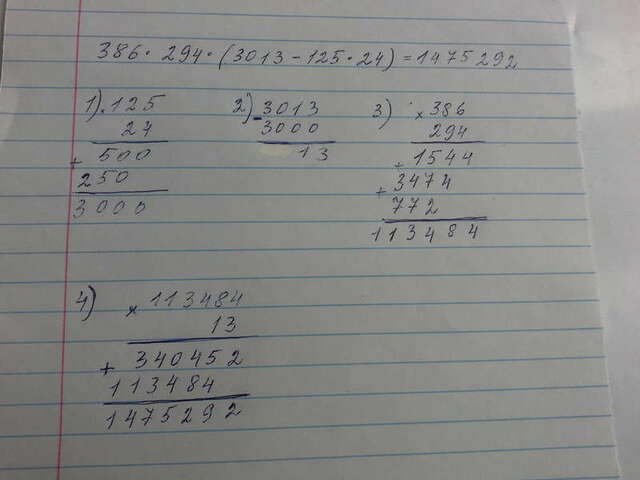 386 · 294 · (3013 - 125 · 24) = 1475292
1) · 125
24
+ 500
250
3000
2) - 3013
3000
13
3) × 386
294
+ 1544
+ 3474
772
113484
4) × 113484
13
+ 340452
113484
1475292